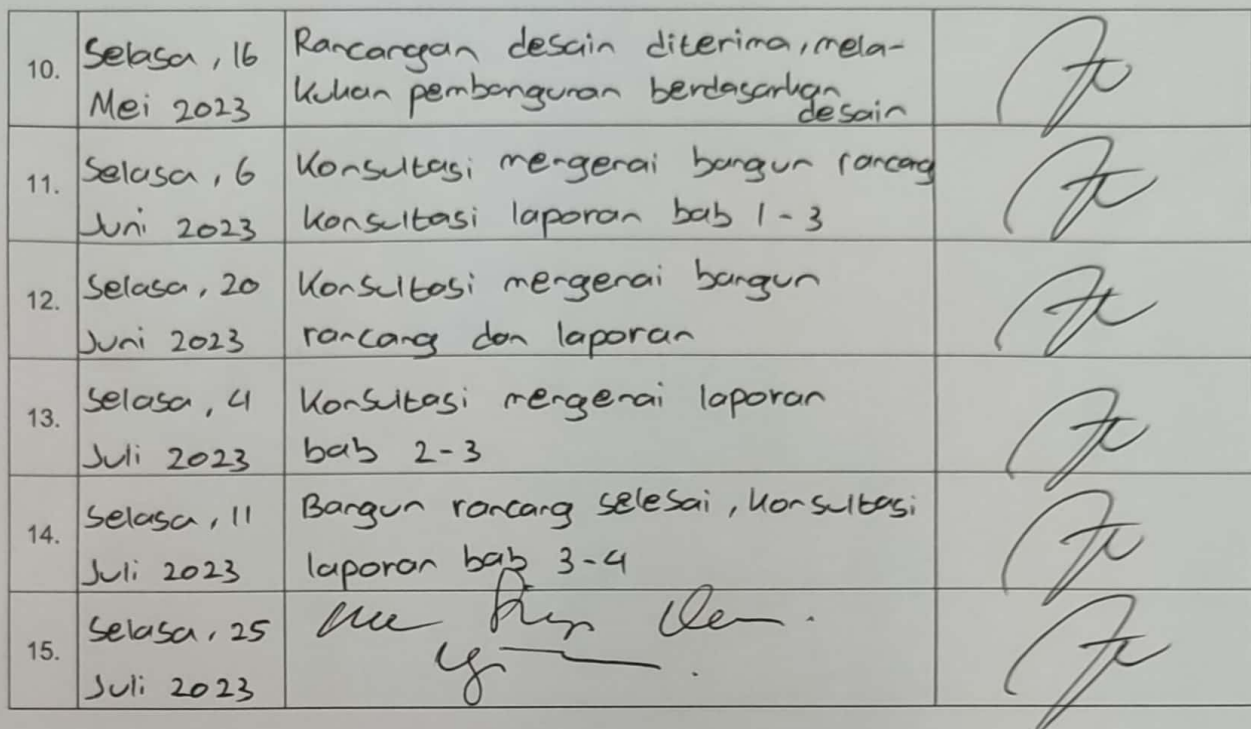 10.
Selasa, 16
Mei 2023
Rancangan desain diterima, mela-
kukan pembangunan berdasarkan
desain
11.
Selasa, 6
Juni 2023
Konsultasi mengenai bangun rancang
konsultasi laporan bab 1 - 3
12.
Selasa, 20
Juni 2023
Konsultasi mengenai bangun
rancang dan laporan
13.
Selasa, 4
Juli 2023
Konsultasi mengenai laporan
bab 2-3
14.
Selasa, 11
Juli 2023
Bangun rancang selesai, konsultasi
laporan bab 3-4
15.
Selasa, 25
Juli 2023